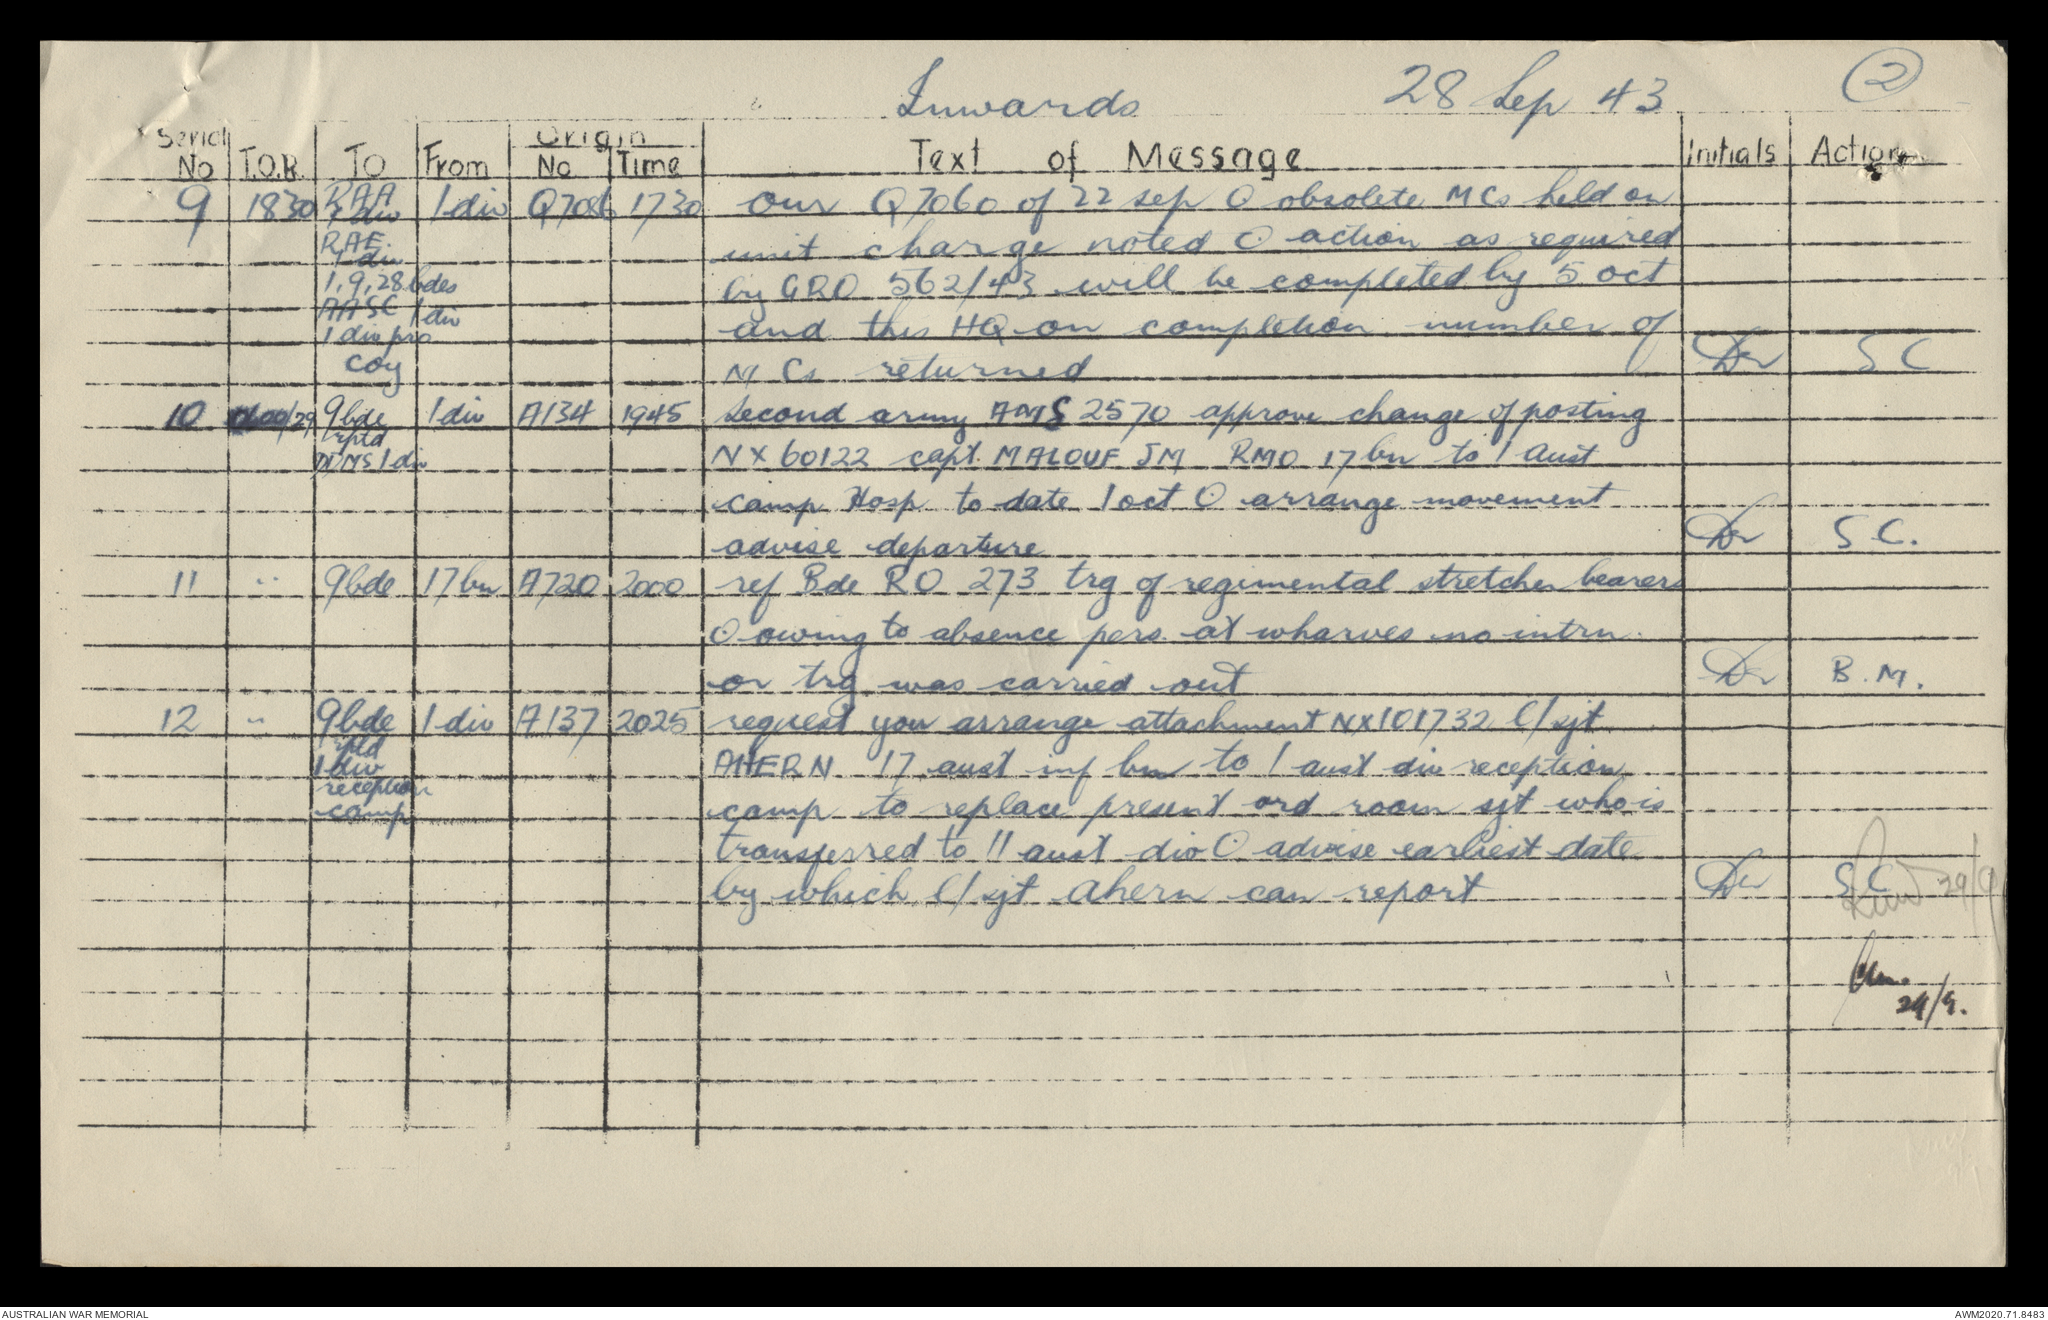 Inwards 28 Sep 43 2
Serial No T.O.R. TO From Origin No Time Text of Message Initials Action
9 1830 RAA 1 div 1 div Q7086 1730 our Q7060 of 22 sep O obsolete MCs held on
RAE 1 div unit charge noted O action as required
1, 9, 28 bdes by GRO 562/43 will be completed by 5 oct
AASC 1 div and this HQ on completion number of
1 div pro coy MCs returned SC
10 0600/29 9 bde 1 div A134 1945 Second army AMS 2570 approve change of posting
rptd DDMS 1 div NX60122 capt. MALOUF JM RMO 17 bn to 1 Aust
camp Hosp to date 1 oct O arrange movement
advise departure S C.
11 " 9 bde 17 bn A720 2000 ref Bde RO 273 trg of regimental stretcher bearers
O owing to absence pers. at wharves no intrn
or trg was carried out B.M.
12 " 9 bde 1 div A137 2025 request you arrange attachment NX101732 l/sjt
rptd 1 div AHERN 17 aust inf bn to 1 aust div reception
reception camp camp to replace present ord room sjt who is
transferred to 11 aust div O advise earliest date
by which l/sjt Ahern can report SC
29/9
29/9.
AUSTRALIAN WAR MEMORIAL AWM2020.71.8483